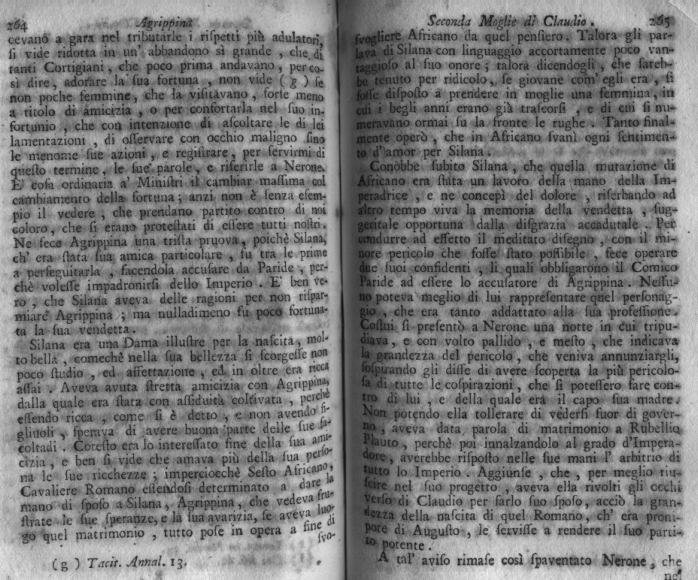 264 Agrippina
cevano a gara nel tributarle i rispetti più adulatori,
si vide ridotta in un' abbandono sì grande, che di
tanti Cortigiani, che poco prima andavano, per così
dire, adorare la sua fortuna, non vide (g) se
non poche femmine, che la visitavano, forse meno
a titolo di amicizia, o per confortarla nel suo infortunio,
che con intenzione di ascoltare le di lei
lamentazioni, di osservar con occhio maligno sino
le menome sue azioni, e registrare, per servirmi di
questo termine, le sue parole, e riferirle a Nerone.
E' cosa ordinaria a' Ministri il cambiar massima col
cambiamento della fortuna; anzi non è senza esempio
il vedere, che prendano partito contro di noi
coloro, che si erano protestati di essere tutti nostri.
Ne fece Agrippina una trista pruova, poichè Silana,
ch' era stata sua amica particolare, fu tra le prime
a perseguitarla, facendola accusare da Paride, perchè
volesse impadronirsi dello Imperio. E' ben vero,
che Silana aveva delle ragioni per non risparmiare
Agrippina; ma nulladimeno fu poco fortunata
la sua vendetta.
Silana era una Dama illustre per la nascita, molto
bella, comechè nella sua bellezza si scorgesse non
poco studio, ed affettazione, ed in oltre era ricca
assai. Aveva avuta stretta amicizia con Agrippina,
dalla quale era stata con assiduità coltivata, perchè
essendo ricca, come si è detto, e non avendo figliuoli,
sperava di avere buona parte delle sue facoltadi.
Cotesto era lo interessato fine della sua amicizia,
e ben si vide che amava più della sua persona
le sue ricchezze; imperciocchè Sesto Africano,
Cavaliere Romano essendosi determinato a dare la
mano di sposo a Silana, Agrippina, che vedeva frustrate
le sue speranze, e la sua avarizia, se aveva luogo
quel matrimonio, tutto pose in opera a fine di
svo-
(g) Tacit. Annal. 13.
Seconda Moglie di Claudio. 265
svogliere Africano da quel pensiero. Talora gli parlava
di Silana con linguaggio accortamente poco vantaggioso
al suo onore; talora dicendogli, che sarebbe
tenuto per ridicolo, se giovane com' egli era, si
fosse disposto a prendere in moglie una femmina, in
cui i begli anni erano già trascorsi, e di cui si numeravano
ormai su la fronte le rughe. Tanto finalmente
operò, che in Africano svanì ogni sentimento
d'amor per Silana.
Conobbe subito Silana, che quella mutazione di
Africano era stata un lavoro della mano della Imperadrice,
e ne concepì del dolore, riserbando ad
altro tempo viva la memoria della vendetta, suggeritale
opportuna dalla disgrazia accadutale. Per
condurre ad effetto il meditato disegno, con il minore
pericolo che fosse stato possibile, fece operare
due suoi confidenti, li quali obbligarono il Comico
Paride ad essere lo accusatore di Agrippina. Nessuno
poteva meglio di lui rappresentare quel personaggio,
che era tanto addattato alla sua professione.
Costui si presentò a Nerone una notte in cui tripudiava,
e con volto pallido, e mesto, che indicava
la grandezza del pericolo, che veniva annunziargli,
sospirando gli disse di avere scoperta la più pericolosa
di tutte le cospirazioni, che si potessero fare contro
di lui, e della quale era il capo sua madre.
Non potendo ella tollerare di vedersi fuor di governo,
aveva data parola di matrimonio a Rubellio
Plauto, perchè poi innalzandolo al grado d'Imperadore,
averebbe risposto nelle sue mani l' arbitrio di
tutto lo Imperio. Aggiunse, che, per meglio riuscire
nel suo progetto, aveva ella rivolti gli occhi
verso di Claudio per farlo suo sposo, acciò la grandezza
della nascita di quel Romano, ch' era pronipote
di Augusto, le servisse a rendere il suo partito
potente.
A tal' aviso rimase così spaventato Nerone, che
ne'